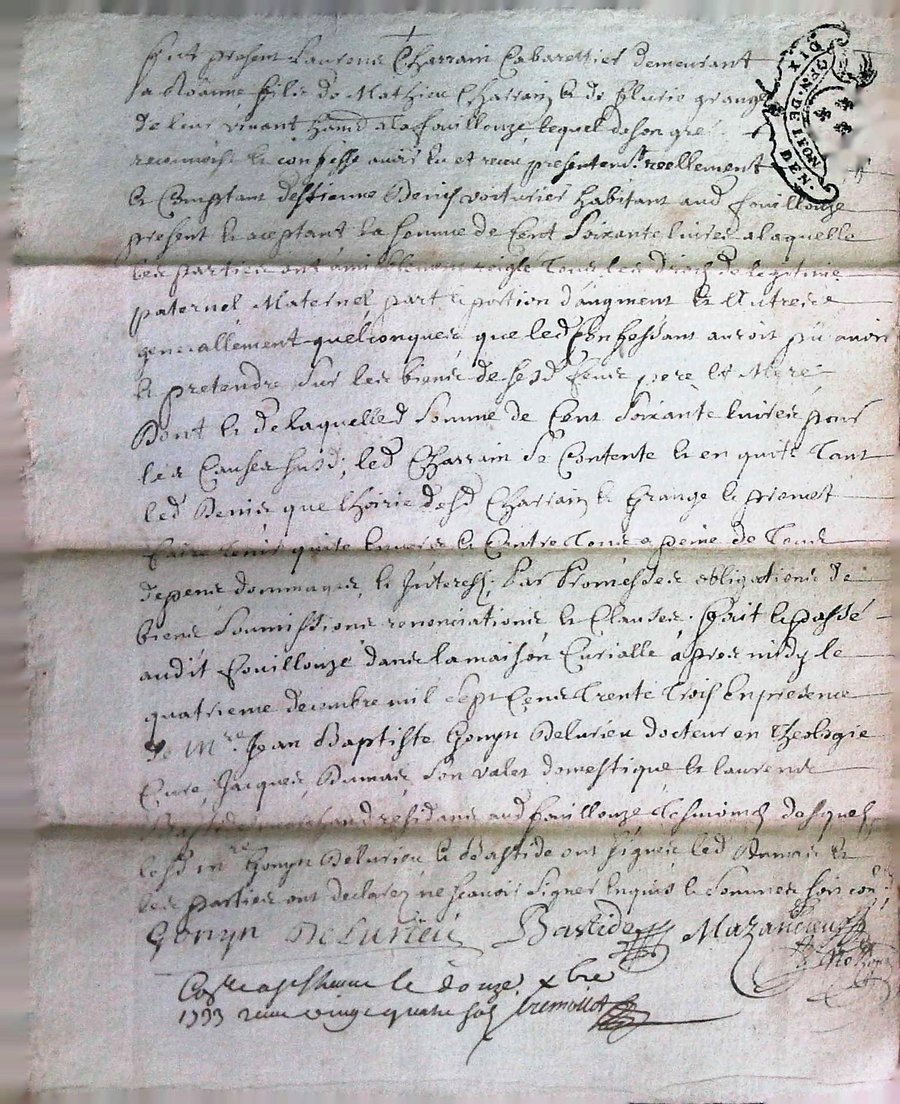 fut present Laurens Charrain Cabarettier demeurant
a Roanne fils de Mathieu Charrain & de Fleurie grange
de leur vivant a la fouillouze, lequel de son gré
reconnoit & confesse avoir eu et receu presentemt. reellement
& Comptant destienne Denis voiturier habitant aud fouillouze
present & aceptant la somme de Cent Soixante livres a laquelle
les parties ont amiablement reigle Tous les droits de legitime
paternel Maternel part & portion d'augment & autres
generallement quelconques que led Confessant auroit pu avoir
& pretendre sur les biens de sesd feus pere & Mere
Dont & de laquelled Somme de Cent Soixante livres pour
les Causes susd; led Charrain Se Contente & en quite Tant
led Denis que l'hoirie desd Charrain & Grange & promet
faire tenir quite Envers & Contre Tous a peine de Tous
depens dommages, & Interests, par promesses obligations de
biens Soumissions renonciations & Clauses. fait & passé
audit fouillouze dans la maison Curialle apres midy le
quatrieme decembre mil Sept Cens Trente Trois En presence
de Mre. Jean Baptiste Gonyn Delurieu docteur en Theologie
Curé, Jacques Dumas, Son valet domestique & laurens
Bastide marchand residans aud fouillouze Tesmoins desquels
lesd mre Gonyn Delurieu & Bastide ont signés led Dumas &
les parties ont declarez ne scavoir signer Enquis & Sommez
Gonyn DeLurieu Bastide
Mazancieu
le douze xbre
1733 receu vingt quatre sols
DIX DEN. GEN. DE LION